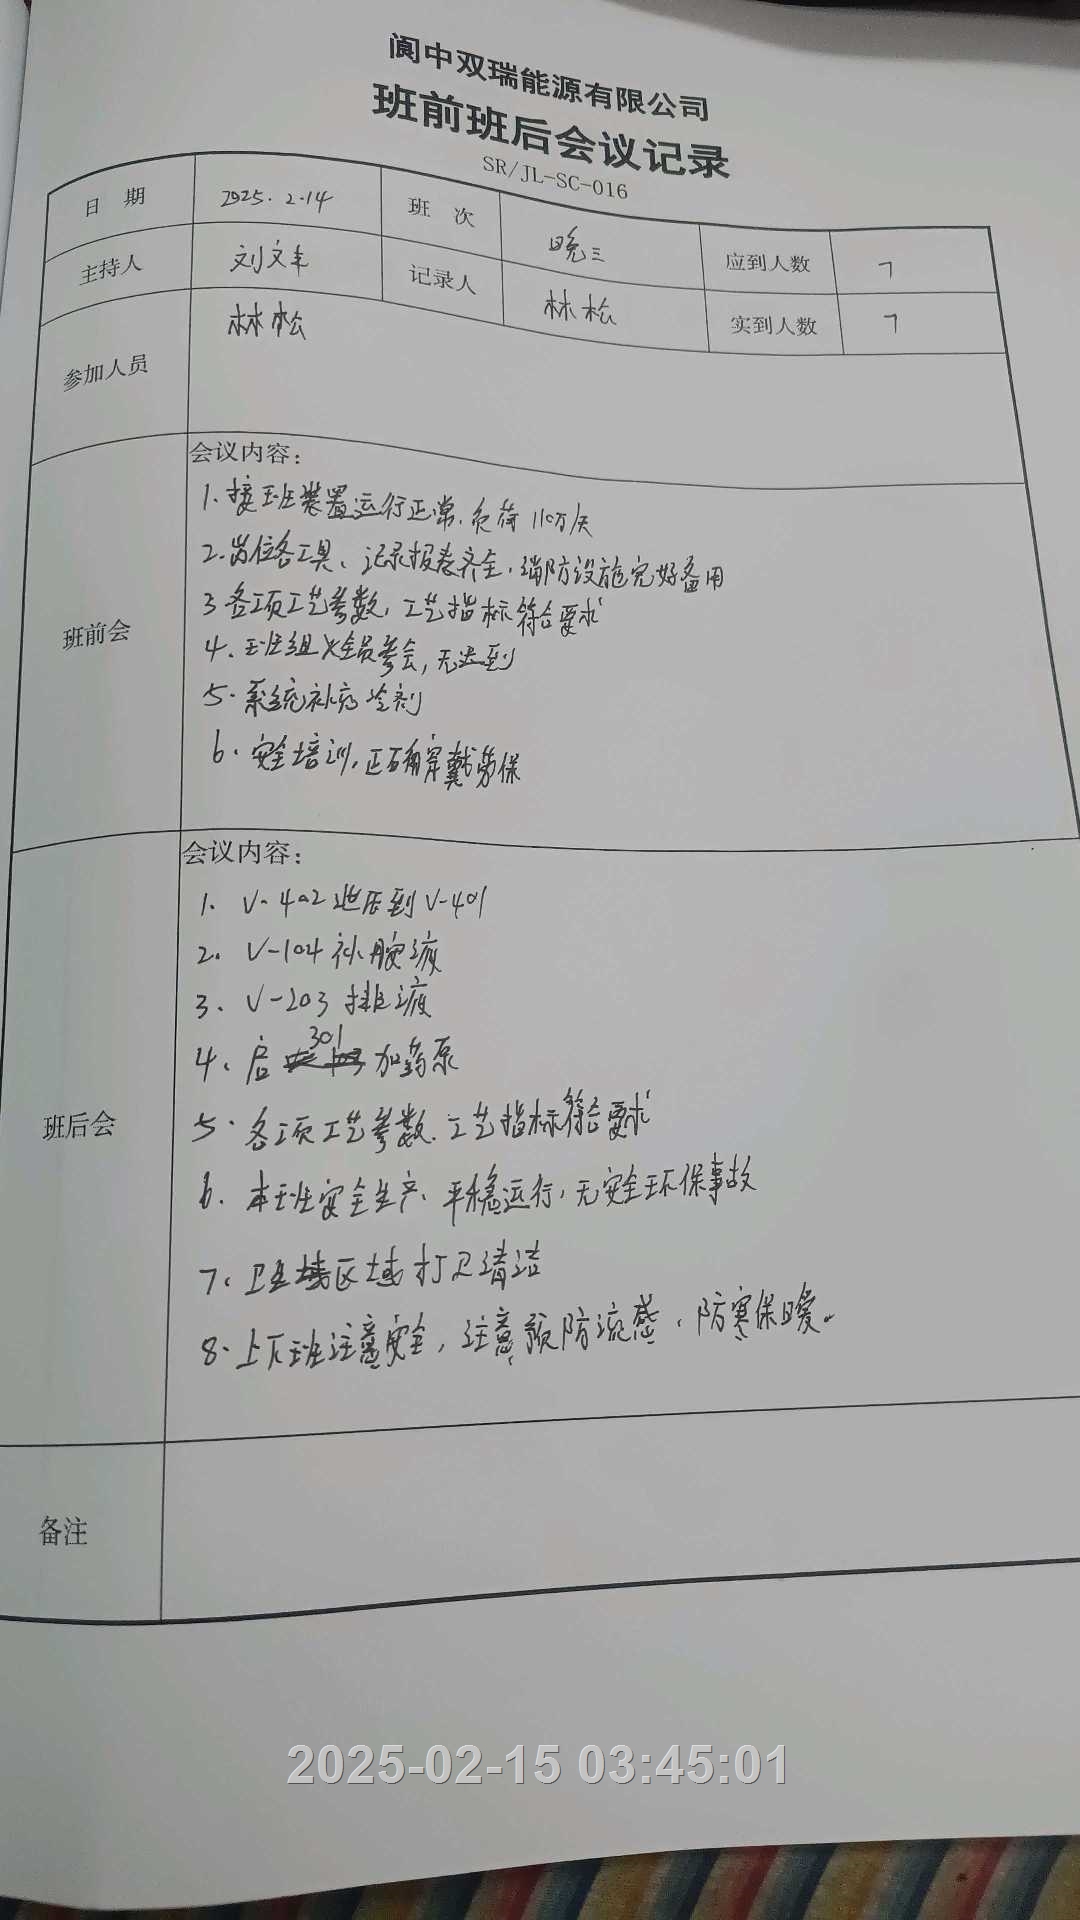 阆中双瑞能源有限公司
班前班后会议记录
SR/JL-SC-016
日 期 2025.2.14 班 次 晚三 应到人数 7
主持人 刘文丰 记录人 林松 实到人数 7
参加人员 林松
班前会
会议内容：
1.接班装置运行正常.负荷110万/天
2.岗位各工具、记录报表齐全,消防设施完好备用
3.各项工艺参数,工艺指标符合要求
4.班组全员参会,无迟到
5.系统补冷剂
6.安全培训.正确穿戴劳保
班后会
会议内容：
1. V-402泄压到V-401
2. V-104补胺液
3. V-203排液
4. 启301加药泵
5. 各项工艺参数.工艺指标符合要求
6. 本班安全生产、平稳运行,无安全环保事故
7. 卫生区域打卫清洁
8.上下班注意安全,注意预防流感,防寒保暖。
备注
2025-02-15 03:45:01